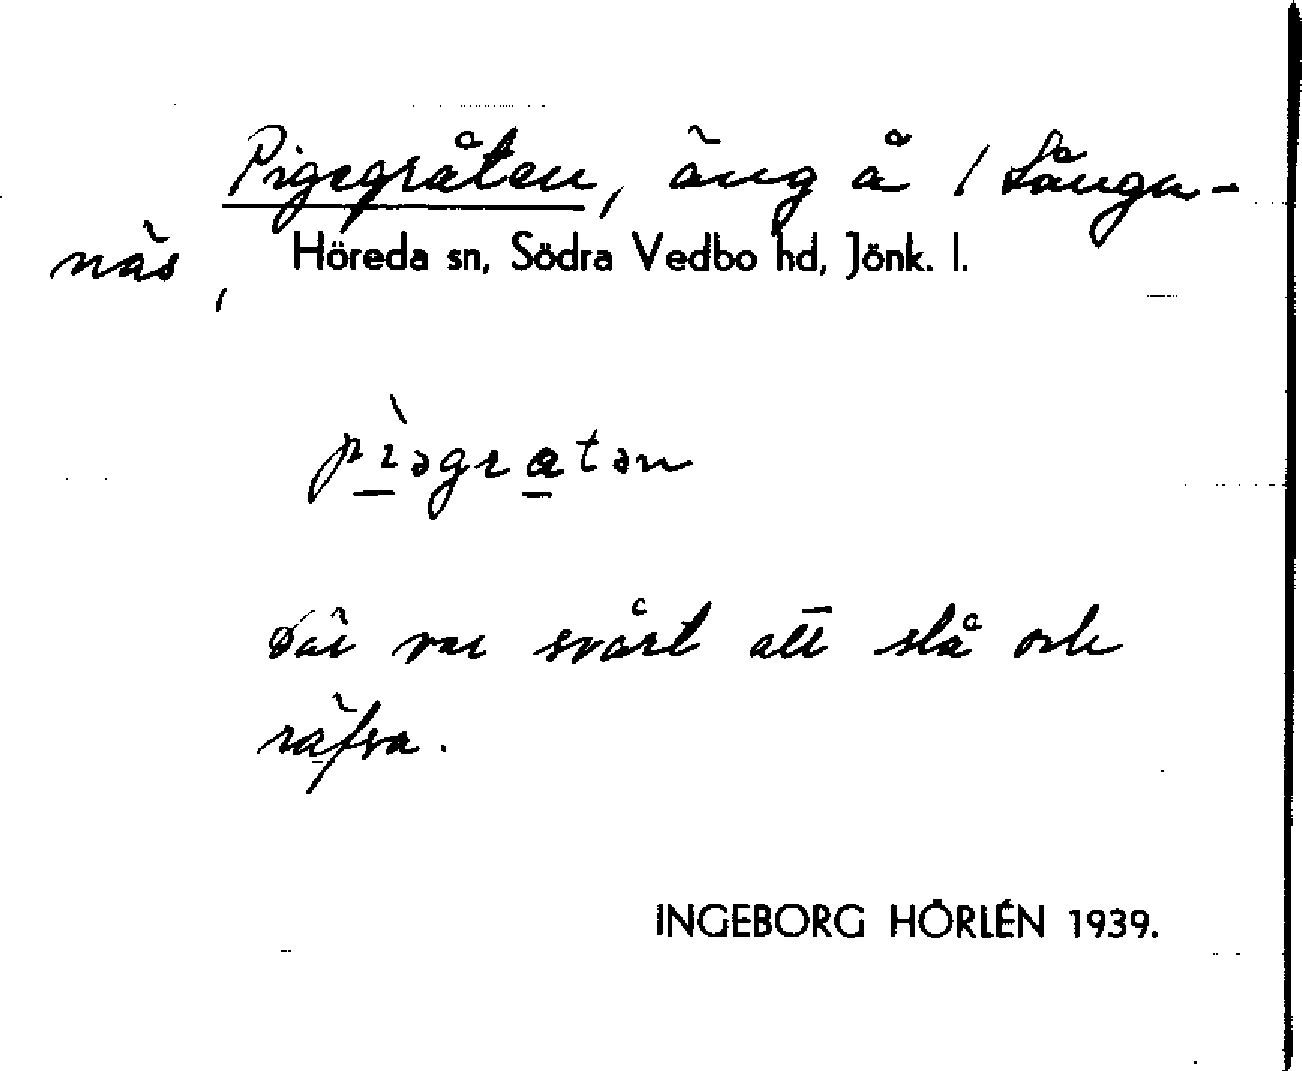 Pigegråten, äng å 1 Långa-
näs, Höreda sn, Södra Vedbo hd, Jönk. l.
pìəgratən
Där var svårt att slå och
räfsa.
INGEBORG HÖRLÉN 1939.